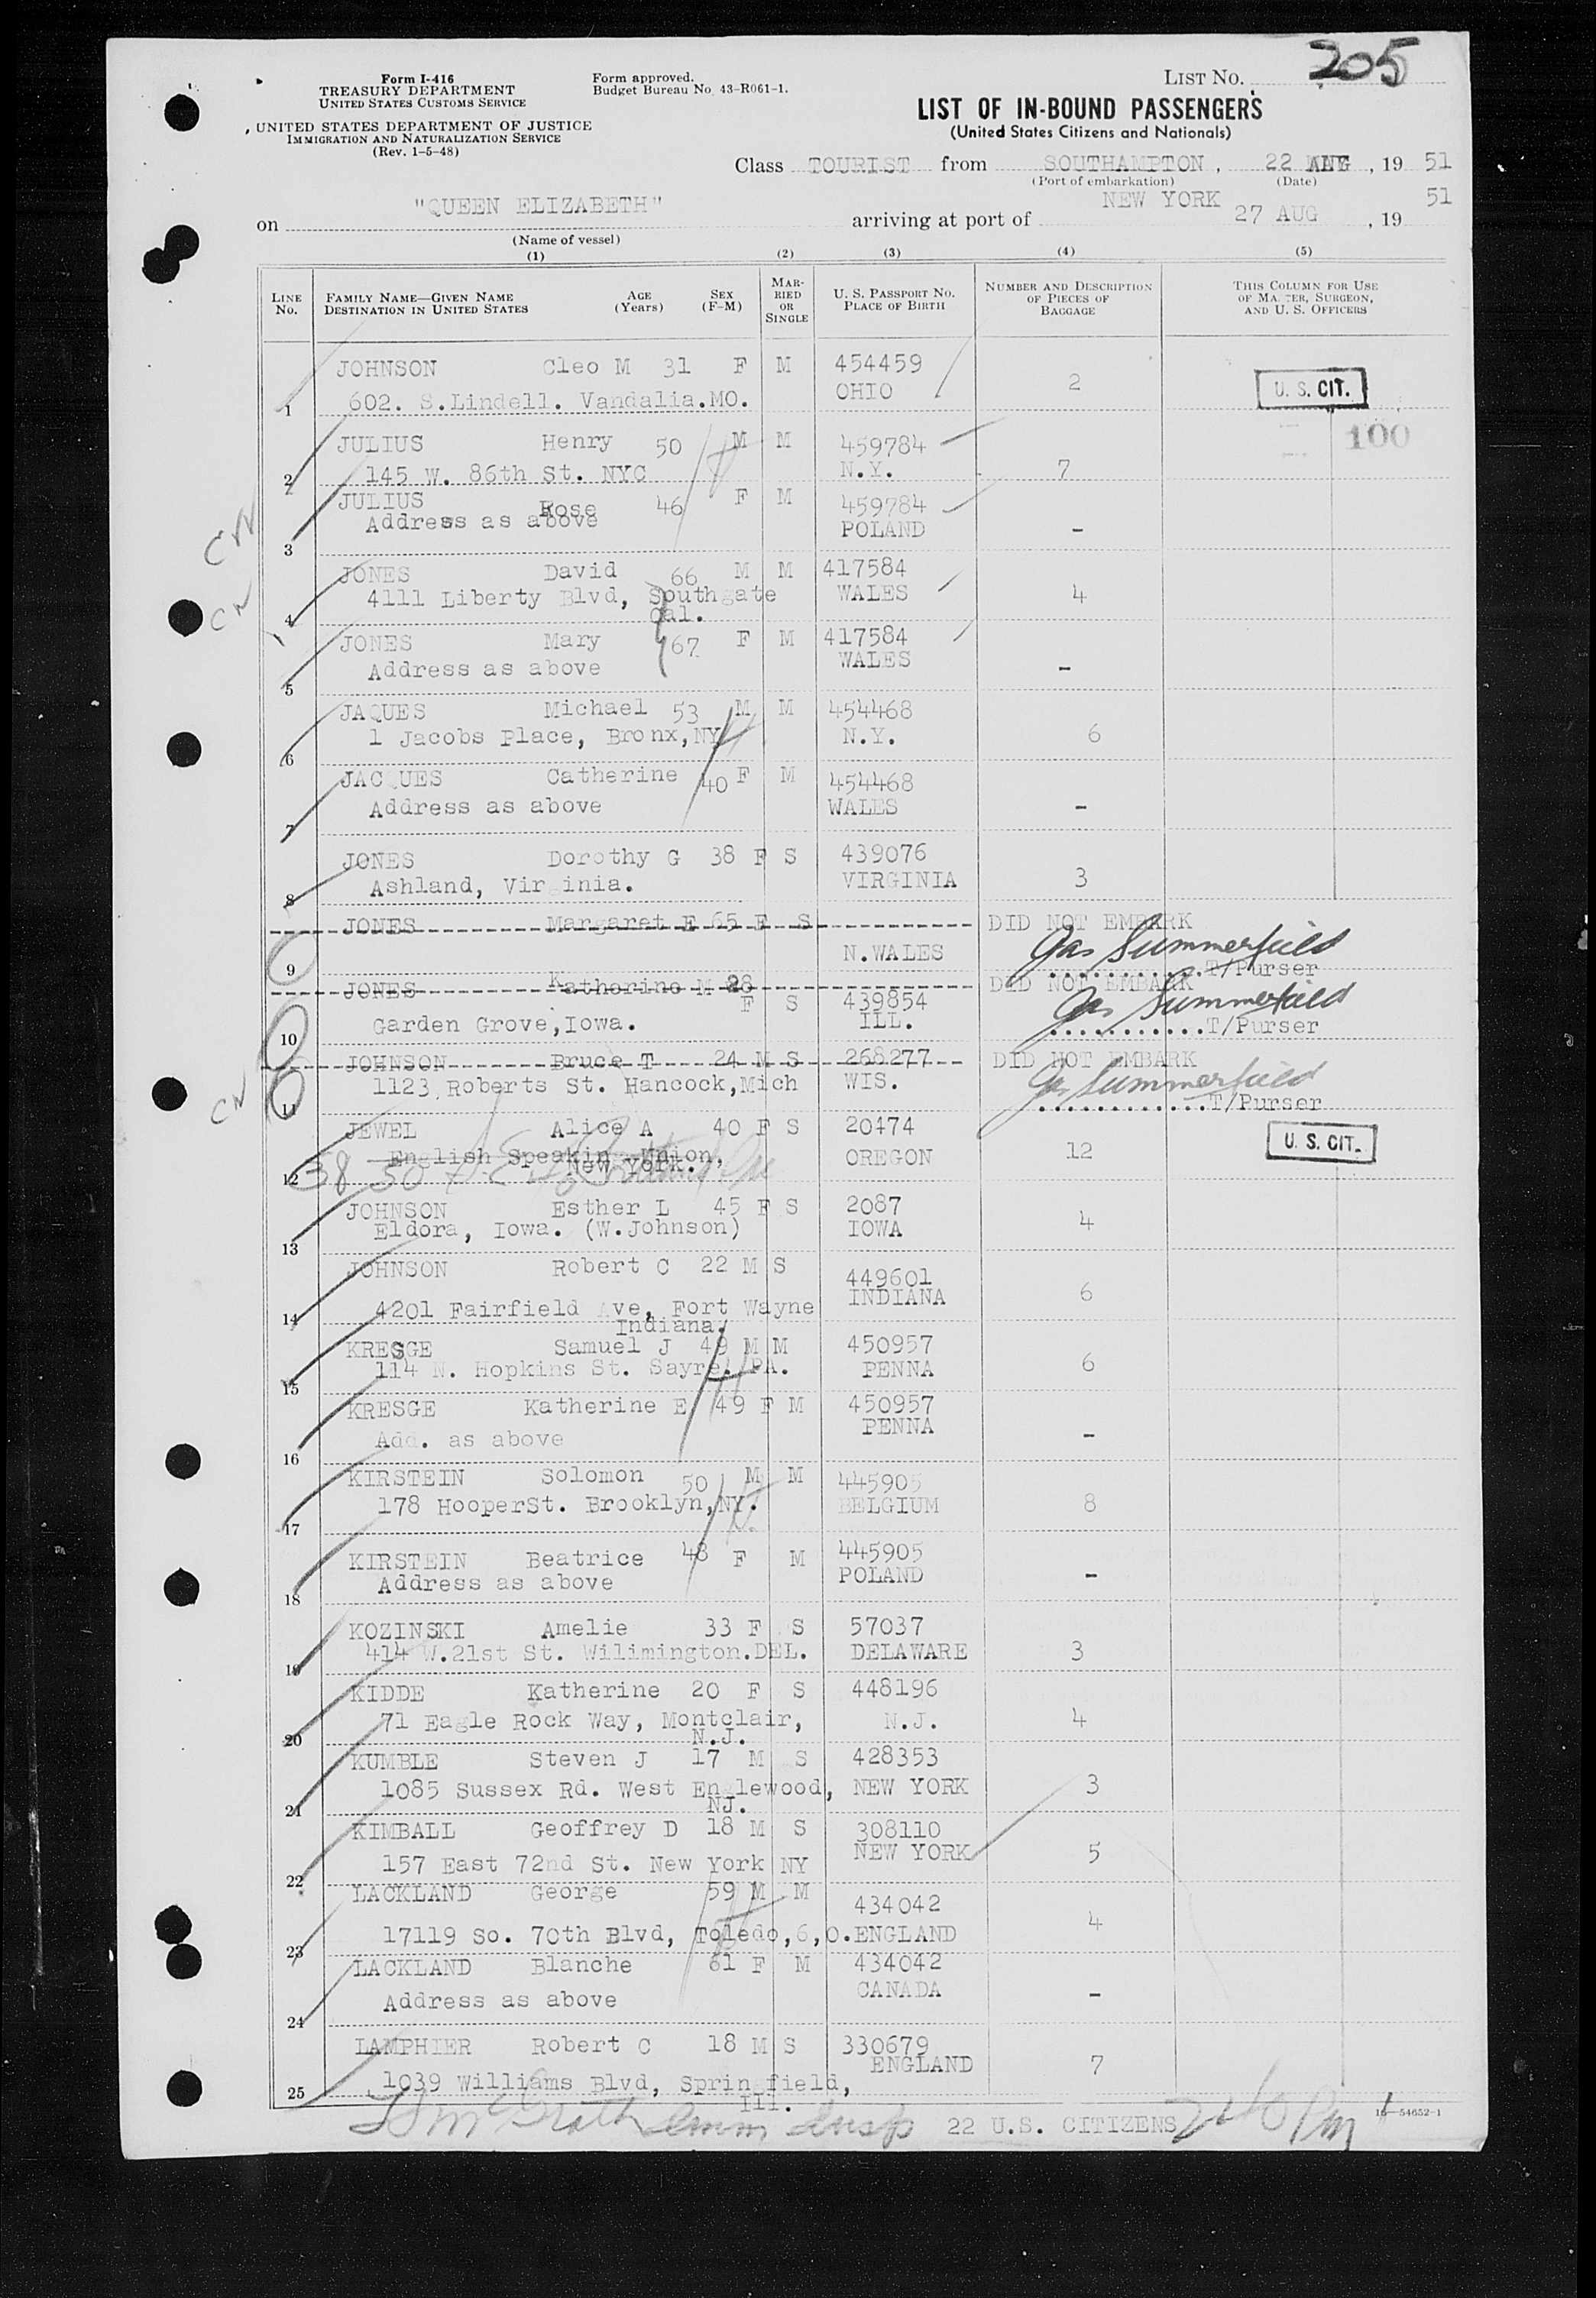 Form I-416
TREASURY DEPARTMENT
UNITED STATES CUSTOMS SERVICE
UNITED STATES DEPARTMENT OF JUSTICE
IMMIGRATION AND NATURALIZATION SERVICE
(Rev. 1-5-48)
Form approved.
Budget Bureau No. 43-R061-1.
LIST No. 205
LIST OF IN-BOUND PASSENGERS
(United States Citizens and Nationals)
Class TOURIST from SOUTHAMPTON, 22 AUG, 19 51
(Port of embarkation) (Date)
on "QUEEN ELIZABETH" arriving at port of NEW YORK 27 AUG, 19 51
(Name of vessel)
(1) (2) (3) (4) (5)
LINE No. FAMILY NAME—GIVEN NAME DESTINATION IN UNITED STATES AGE (Years) SEX (F-M) MARRIED OR SINGLE U. S. PASSPORT NO. PLACE OF BIRTH NUMBER AND DESCRIPTION OF PIECES OF BAGGAGE THIS COLUMN FOR USE OF MASTER, SURGEON, AND U. S. OFFICERS
JOHNSON Cleo M 31 F M 454459
1 602. S.Lindell. Vandalia.MO. OHIO 2 U. S. CIT.
100
JULIUS Henry 50 M M 459784
2 145 W. 86th St. NYC N.Y. 7
JULIUS Rose 46 F M 459784
Address as above POLAND -
3
CN
JONES David 66 M M 417584
4111 Liberty Blvd, Southgate WALES 4
CN 4 Cal.
JONES Mary 67 F M 417584
Address as above WALES -
5
JAQUES Michael 53 M M 454468
1 Jacobs Place, Bronx,NY N.Y. 6
6
JACQUES Catherine 40 F M 454468
Address as above WALES -
7
JONES Dorothy G 38 F S 439076
Ashland, Virginia. VIRGINIA 3
8
JONES Margaret E 65 F S DID NOT EMBARK
9 N.WALES Jas Summerfield
T/Purser
JONES Katherine M 28 DID NOT EMBARK
F S 439854 Jas Summerfield
10 Garden Grove,Iowa. ILL. T/Purser
JOHNSON Bruce T 24 M S 268277 DID NOT EMBARK
1123 Roberts St. Hancock,Mich WIS. Jas Summerfield
CN 11 T/Purser
JEWEL Alice A 40 F S 20474
English Speakin Union, OREGON 12 U. S. CIT.
12 New York.
JOHNSON Esther L 45 F S 2087
Eldora, Iowa. (W.Johnson) IOWA 4
13
JOHNSON Robert C 22 M S 449601
4201 Fairfield Ave, Fort Wayne INDIANA 6
14 Indiana.
KRESGE Samuel J 49 M M 450957
114 N. Hopkins St. Sayre. PA. PENNA 6
15
KRESGE Katherine E 49 F M 450957
Add. as above PENNA -
16
KIRSTEIN Solomon 50 M M 445905
178 HooperSt. Brooklyn,NY. BELGIUM 8
17
KIRSTEIN Beatrice 48 F M 445905
Address as above POLAND -
18
KOZINSKI Amelie 33 F S 57037
414 W.21st St. Wilimington.DEL. DELAWARE 3
19
KIDDE Katherine 20 F S 448196
71 Eagle Rock Way, Montclair, N.J. 4
20 N.J.
KUMBLE Steven J 17 M S 428353
1085 Sussex Rd. West Englewood, NEW YORK 3
21 NJ.
KIMBALL Geoffrey D 18 M S 308110
157 East 72nd St. New York NY NEW YORK 5
22
LACKLAND George 59 M M 434042
17119 So. 70th Blvd, Toledo,6,O. ENGLAND 4
23
LACKLAND Blanche 61 F M 434042
Address as above CANADA -
24
LAMPHIER Robert C 18 M S 330679
1039 Williams Blvd, Springfield, ENGLAND 7
25 Ill.
McGrath Imm Insp 22 U.S. CITIZENS 16—54652-1